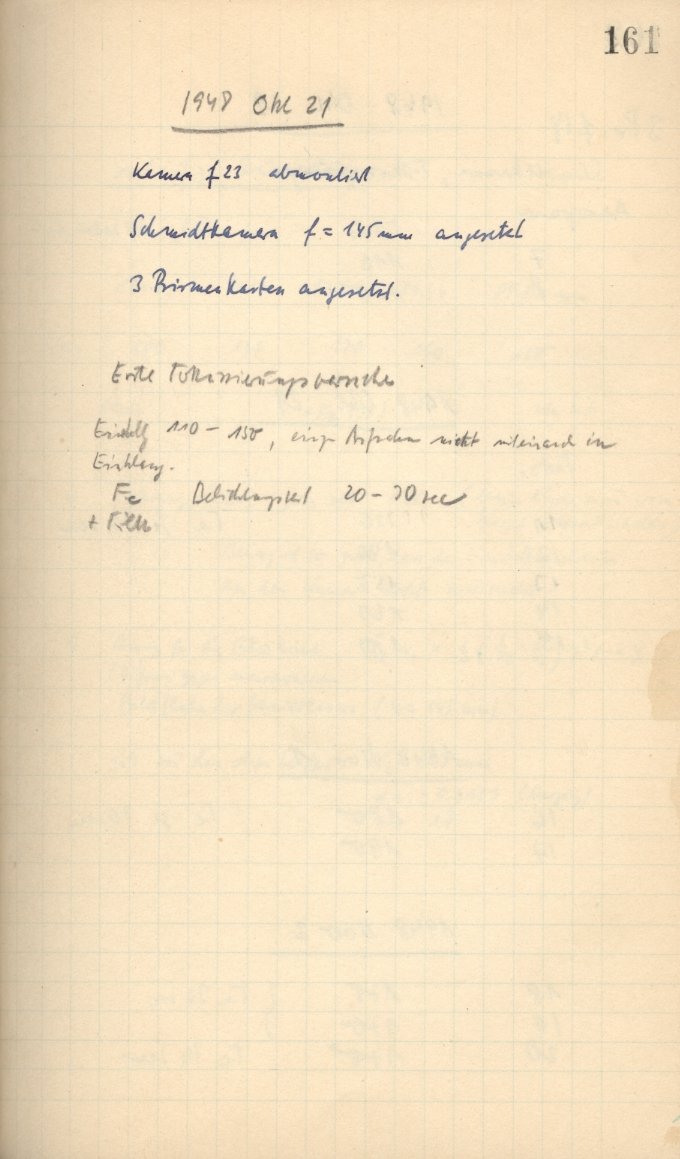 161
1948 Okt 21
Kamera f 23 abmontiert
Schmidtkamera f = 145 mm angesetzt
3 Prismenkasten angesetzt.
Erste Fokussierungsversuche
110 - 150, einige Aufnahmen nicht miteinand in
Einklang.
Fe Belichtungszeit 20 - 30 sec
+ Filter